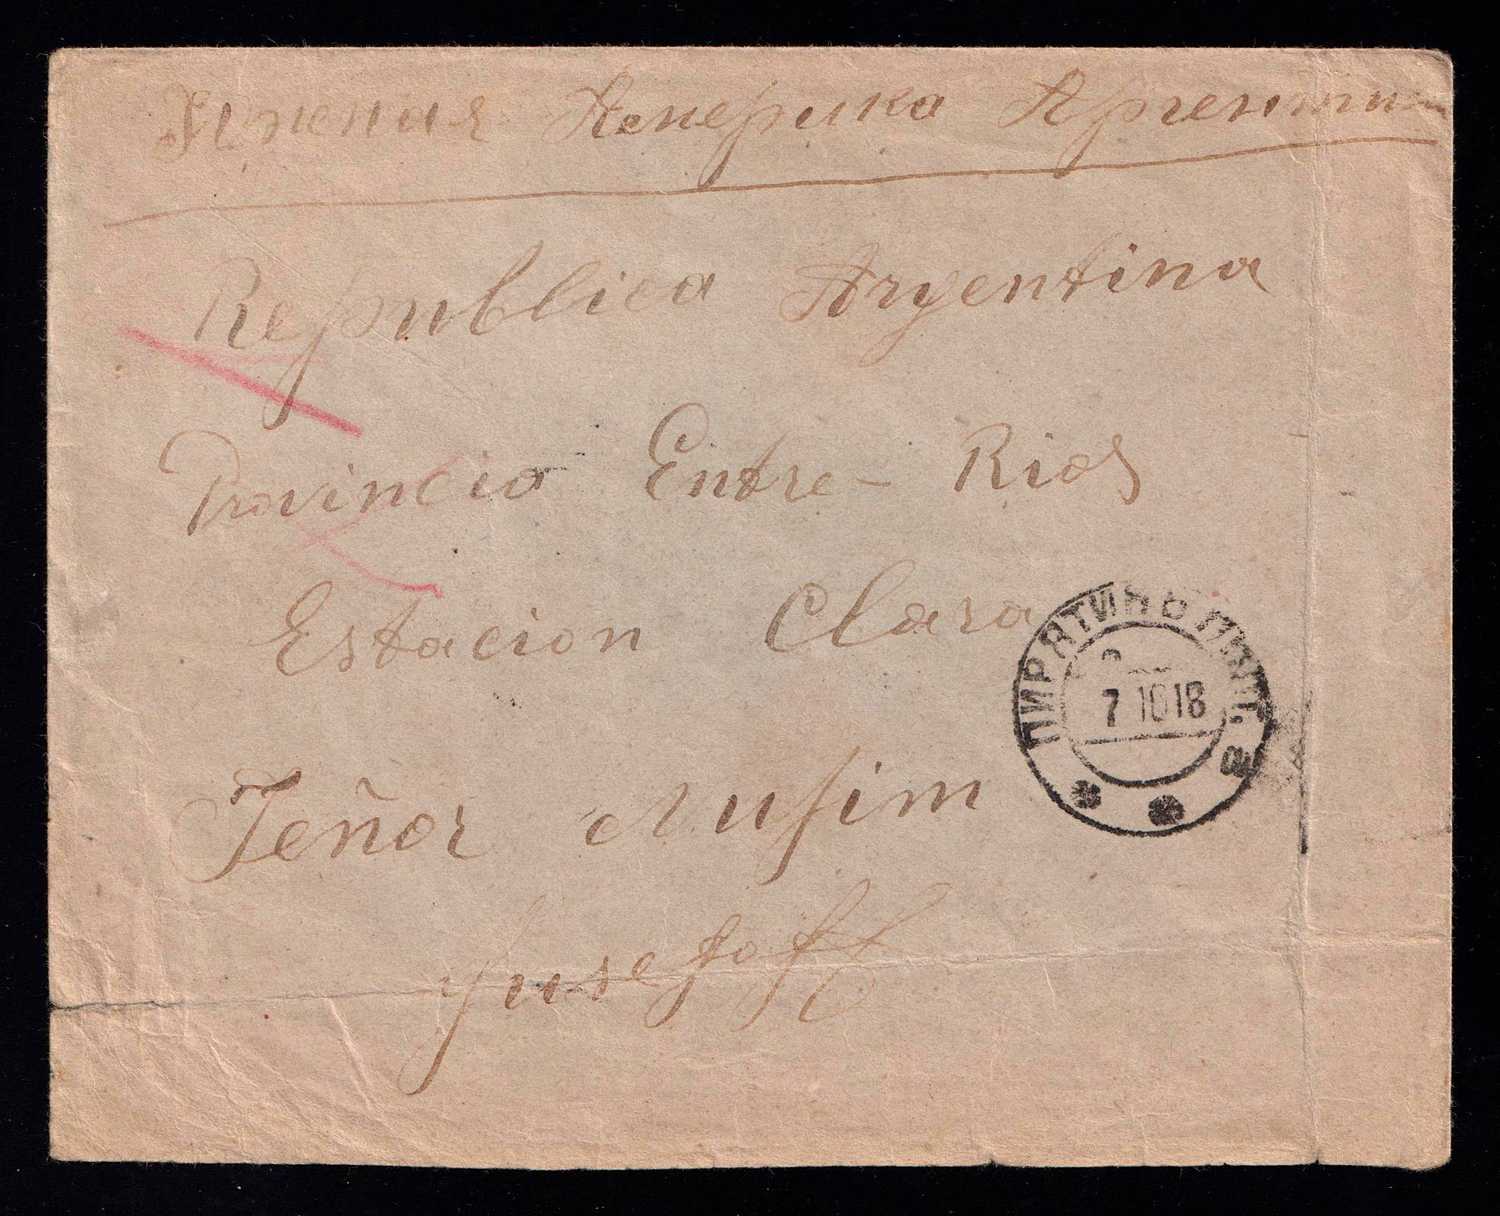 Южная Америка Аргентина
Republica Argentina
Provincio Entre-Rios
Estacion Clara
ПИРЯТИНЪ ПОЛТ. а
7 10 18
Señor Nufim
Yusefoff